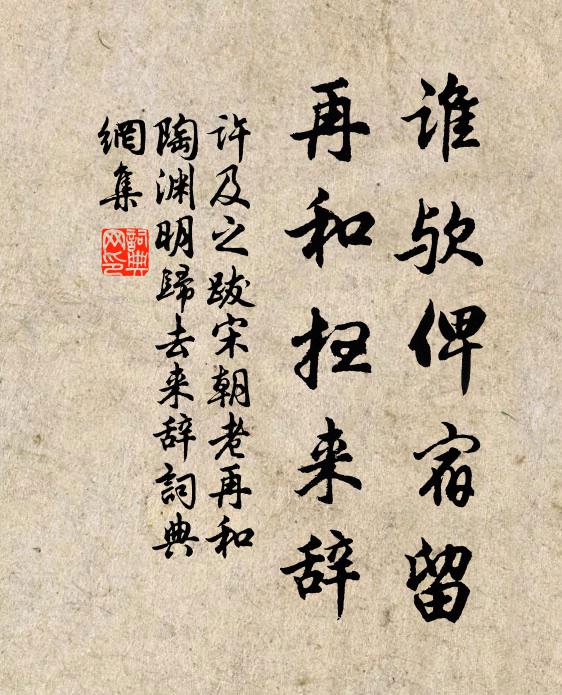 谁欤俾宿留
再和归来辞
许及之跋宋朝老再和
陶渊明歸去来辞詞典
網集
詞典
网印